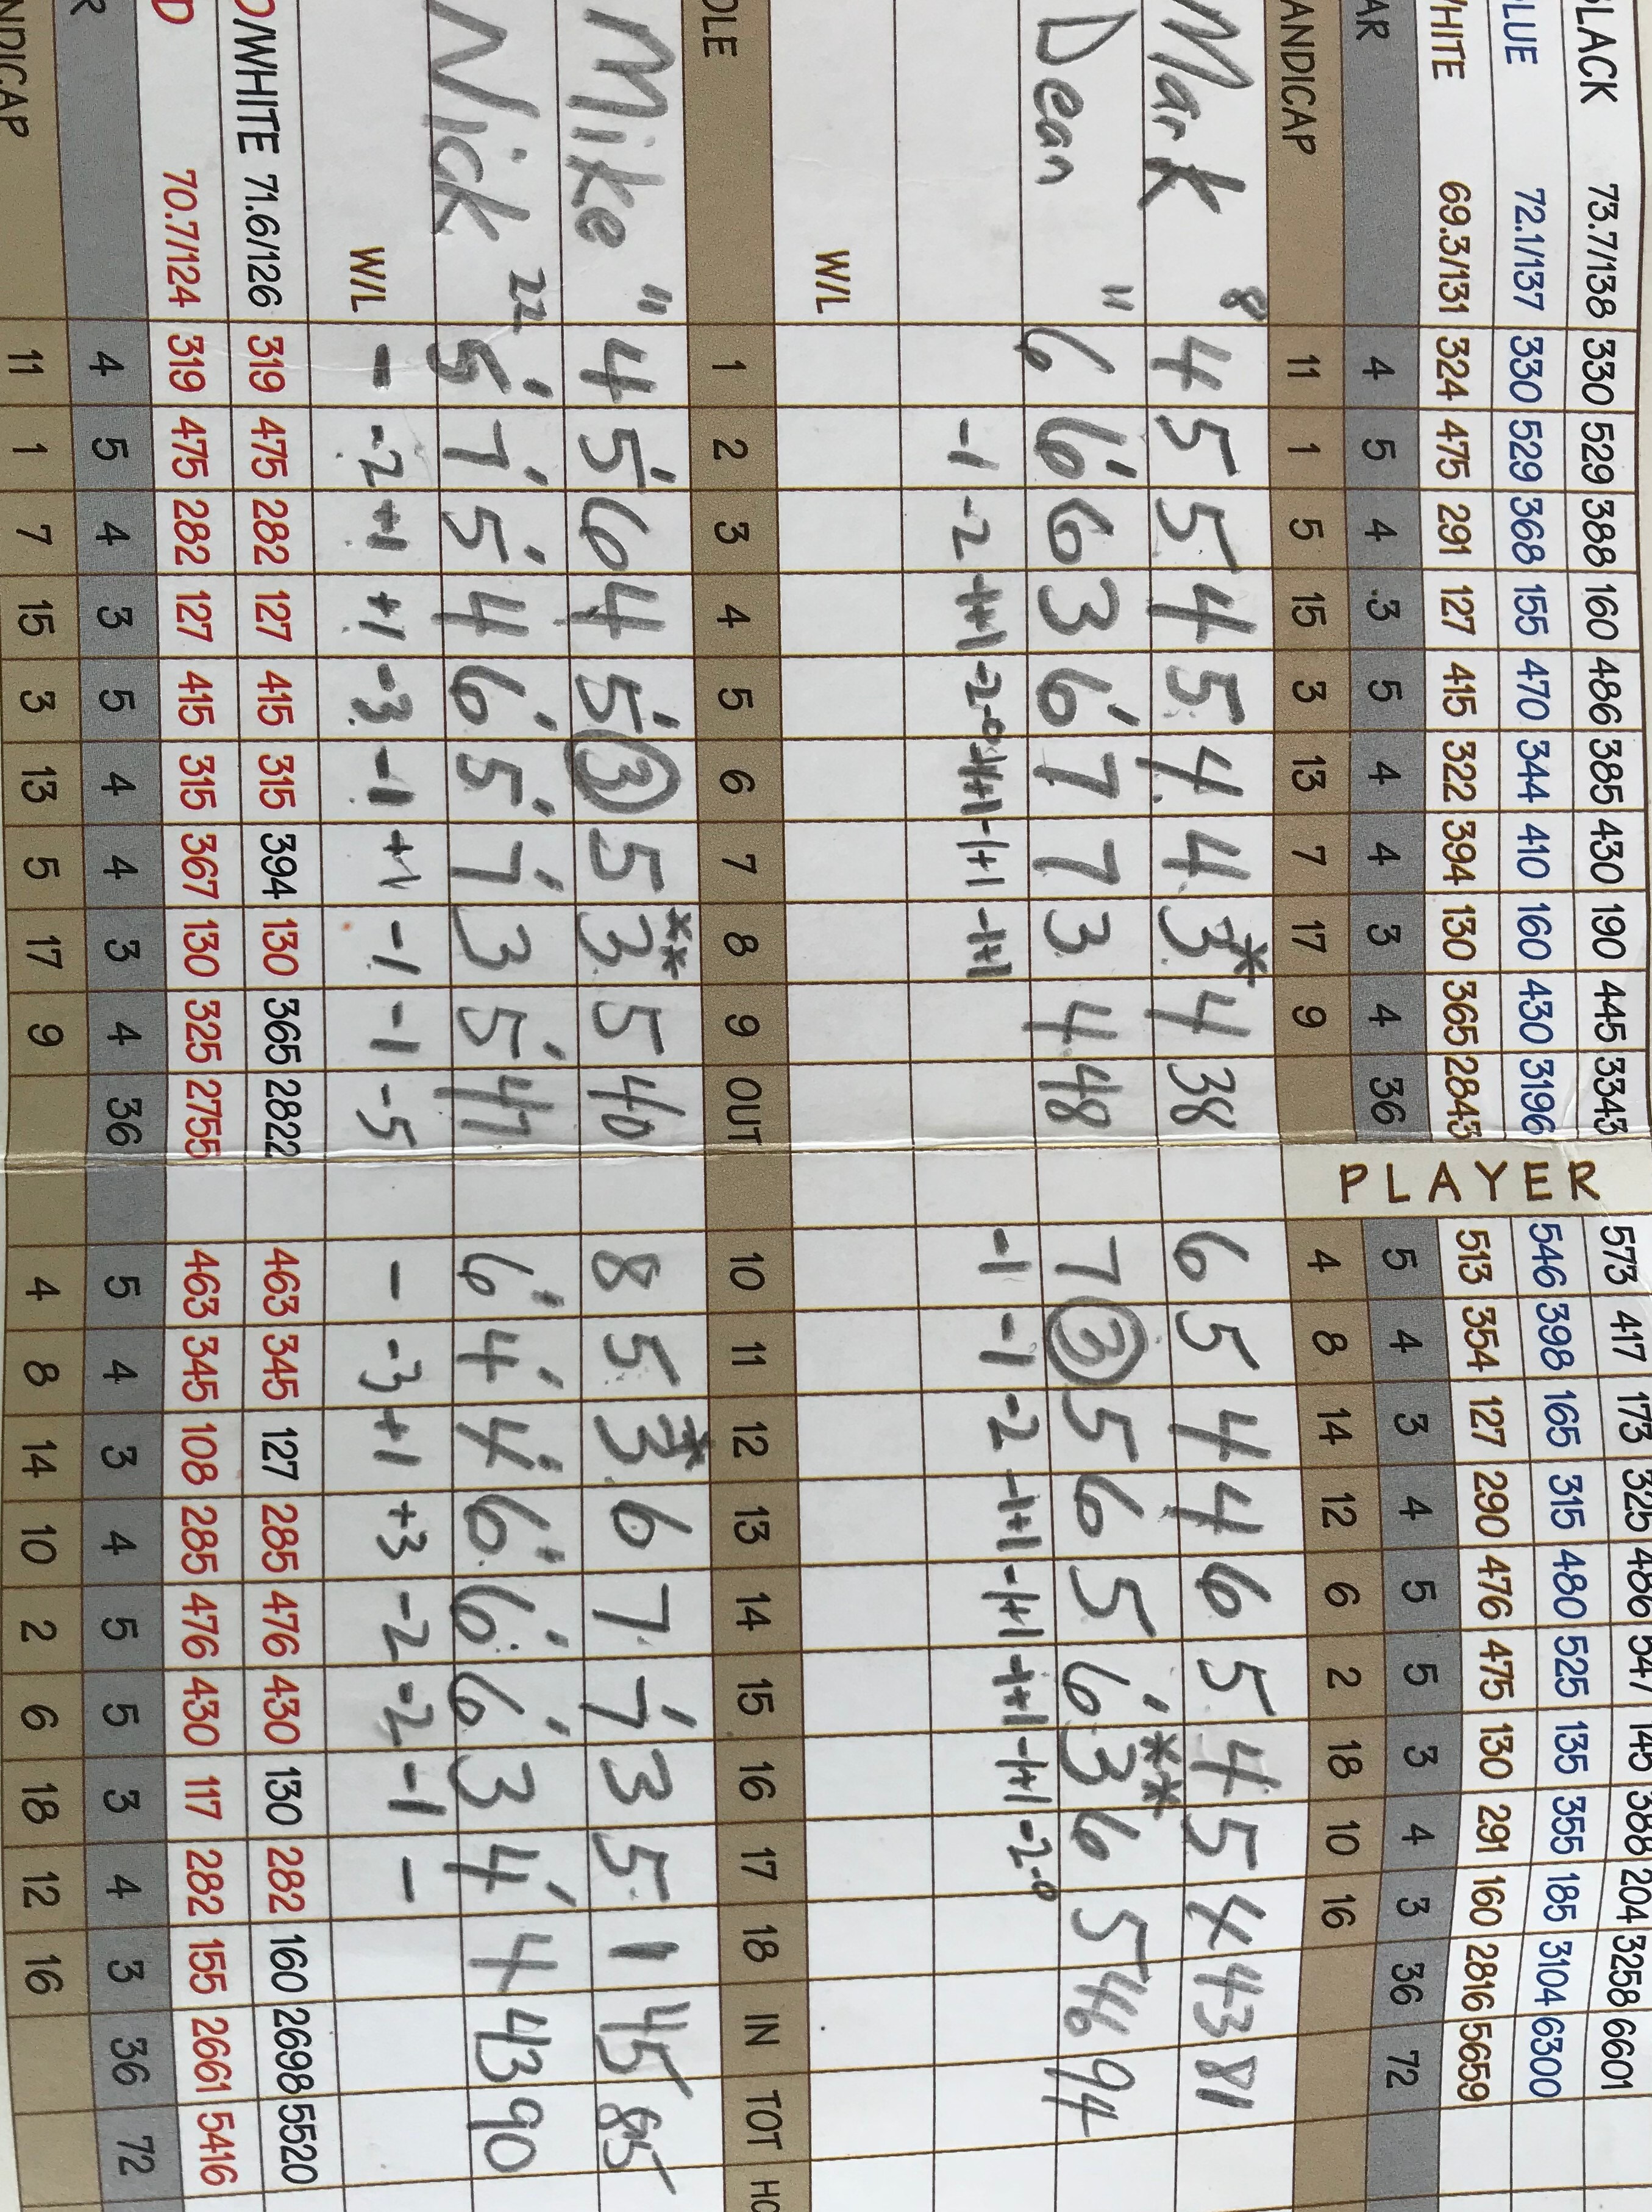 BLACK 73.7/138 330 529 388 160 486 385 430 190 445 3343 573 417 173 325 486 547 145 388 204 3258 6601
BLUE 72.1/137 330 529 368 155 470 344 410 160 430 3196 546 398 165 315 480 525 135 355 185 3104 6300
WHITE 69.3/131 324 475 291 127 415 322 394 130 365 2843 513 354 127 290 476 475 130 291 160 2816 5659
PLAYER
PAR 4 5 4 3 5 4 4 3 4 36 5 4 3 4 5 5 3 4 3 36 72
HANDICAP 11 1 5 15 3 13 7 17 9 4 8 14 12 6 2 18 10 16
Mark 8 4 5 5 4 5 4 4 3* 4 38 6 5 4 4 6 5 4 5 4 43 81
Dean " 6 6' 6 3 6' 7 7 3 4 48 7 3 5 6 5 6' 3** 6 5 46 94
-1 -2 -1+1 -2-0 -1+1 -1+1 -1+1 -1 -1 -2 -1+1 -1+1 -1+1 -1+1 -2-0
W/L
HOLE 1 2 3 4 5 6 7 8 9 OUT 10 11 12 13 14 15 16 17 18 IN TOT HC
Mike " 4 5' 6 4 5' 3 5 3** 5 40 8 5 3* 6 7 7' 3 5 1 45 85
Nick 22 5' 7' 5' 4 6' 5' 7' 3 5' 47 6' 4' 4' 6' 6' 6' 3 4' 4 43 90
W/L - -2 +1 +1 -3 -1 +1 -1 -1 -5 - -3 +1 +3 -2 -2 -1 -
D/WHITE 71.6/126 319 475 282 127 415 315 394 130 365 2822 463 345 127 285 476 430 130 282 160 2698 5520
D 70.7/124 319 475 282 127 415 315 367 130 325 2755 463 345 108 285 476 430 117 282 155 2661 5416
R 4 5 4 3 5 4 4 3 4 36 5 4 3 4 5 5 3 4 3 36 72
NDICAP 11 1 7 15 3 13 5 17 9 4 8 14 10 2 6 18 12 16